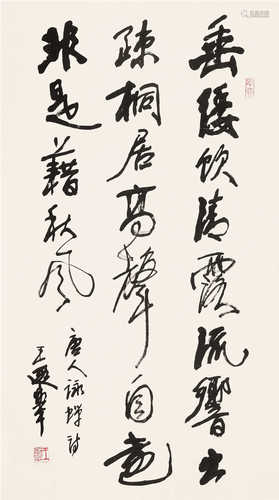 垂緌飲清露流響出
疎桐居高聲自遠
非是藉秋風
唐人詠蟬詩
王遐舉